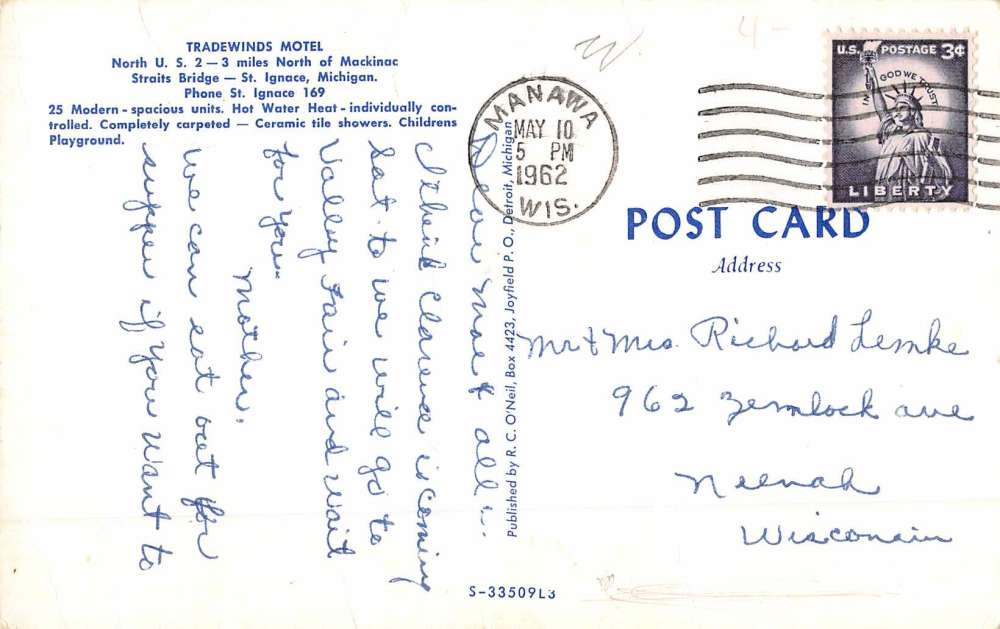 TRADEWINDS MOTEL
North U. S. 2 — 3 miles North of Mackinac
Straits Bridge — St. Ignace, Michigan.
Phone St. Ignace 169
25 Modern - spacious units. Hot Water Heat - individually con-
trolled. Completely carpeted — Ceramic tile showers. Childrens
Playground.
Dear Mae & all :.
I think Clarence is coming
Sat. to we will go to
Valley Fair and wait
for you.
Mother.
We can eat out for
supper if you want to
Published by R. C. O'Neil, Box 4423, Joyfield P. O., Detroit, Michigan
S-33509L3
W.
4-
MANAWA
MAY 10
5 PM
1962
WIS.
U.S. POSTAGE 3¢
IN GOD WE TRUST
LIBERTY
POST CARD
Address
Mr & Mrs. Richard Lemke
962 Zemlock ave
Neenah
Wisconsin